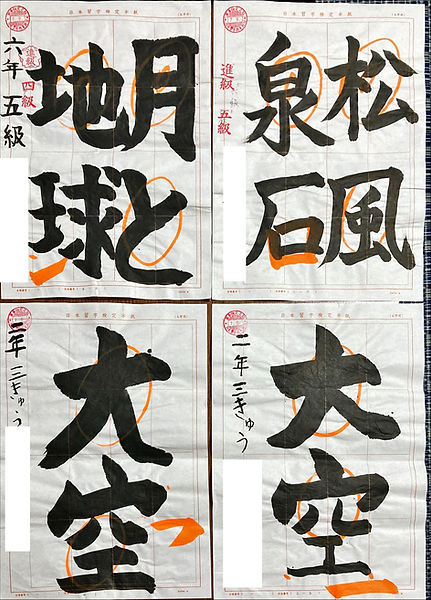 日本習字検定半紙
月と
地球
進級
四級
六年 五級
日本習字検定半紙
松風
泉石
進級 五級
日本習字検定半紙
大空
二年 三きゅう
日本習字検定半紙
大空
二年 三きゅう